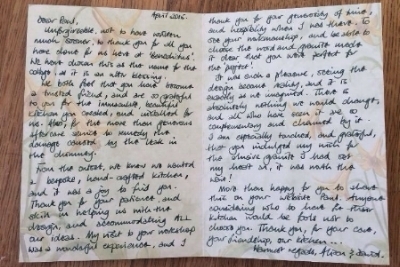 April 2015.
Dear Paul,
Unforgiveable, not to have written
much sooner, to thank you for all you
have done for us here at 'Benedictus'.
We have chosen this as the name for the
cottage, as it is an utter blessing.
We both feel that you have become
a trusted friend, and are so grateful
to you for the immaculate, beautiful
kitchen you created, and installed for
us. Also, for the more than generous
aftercare service to remedy the
damage caused by the leak in
the chimney.
From the outset, we knew we wanted
a bespoke, hand-crafted kitchen,
and it was a joy to find you.
Thank you for your patience, and
skill in helping us with the
design, and accommodating ALL
our ideas. My visit to your workshop
was a wonderful experience, and I
thank you for your generosity of time,
and hospitality when I was there. To
see your craftsmanship, and be able to
choose the wood and granite made
it clear that you were perfect for
the project!
It was such a pleasure, seeing the
design become reality, and it is
exactly as we imagined. There is
absolutely nothing we would change,
and all who have seen it are so
complimentary and charmed by it.
I am especially touched, and grateful,
that you indulged my wish for
the elusive granite I had set
my heart on, it was worth the
wait!
More than happy for you to share
this on your website Paul. Anyone
considering who to have for their
kitchen would be fools not to
choose you. Thank you, for your care,
your friendship, our kitchen...
Warmest regards, Alison & David.